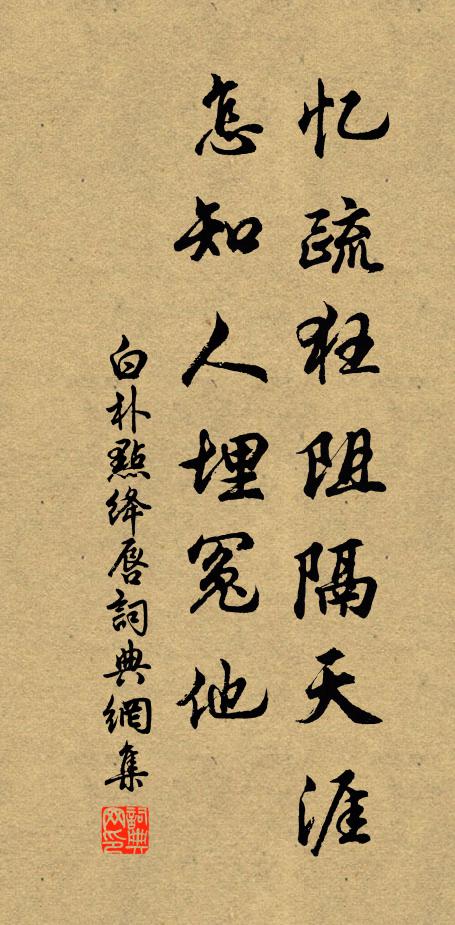 忆疏狂阻隔天涯
怎知人埋冤他
白朴點绛唇詞典網集
詞典网印